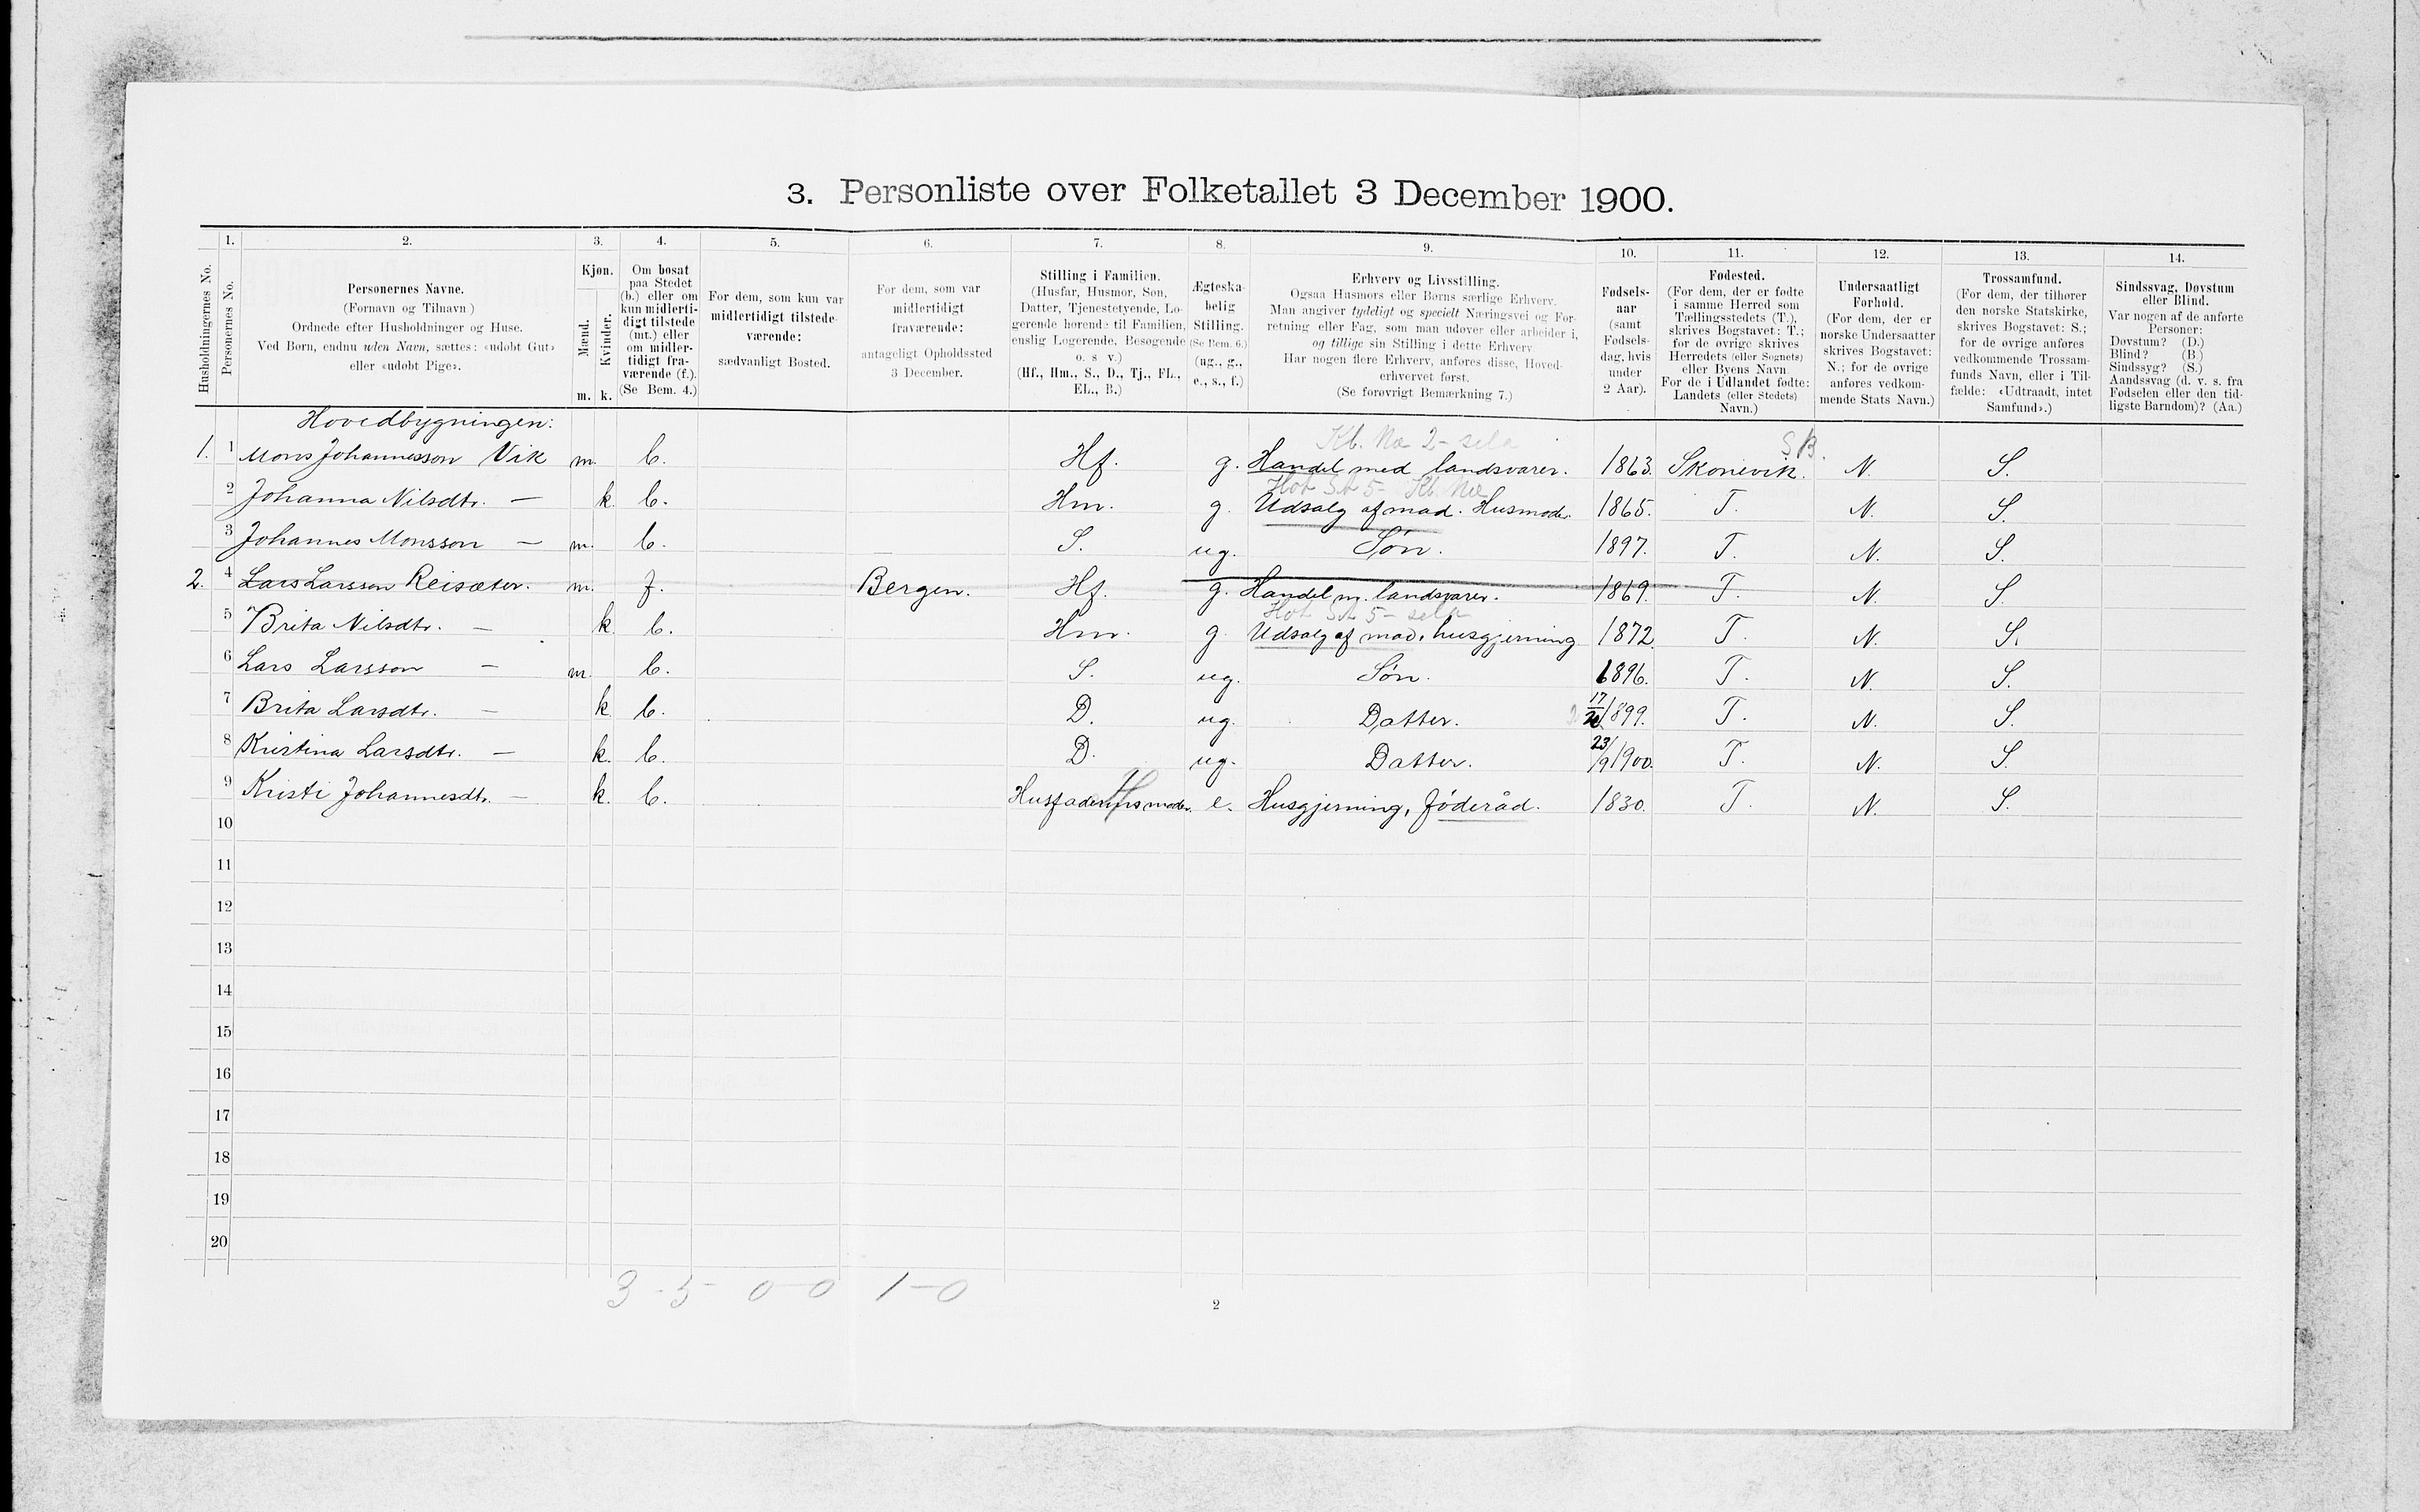 3. Personliste over Folketallet 3 December 1900.
1. 2. 3. 4. 5. 6. 7. 8. 9. 10. 11. 12. 13. 14.
Husholdningernes No.
Personernes No.
Personernes Navne.
(Fornavn og Tilnavn)
Ordnede efter Husholdninger og Huse.
Ved Børn, endnu uden Navn, sættes: «udøbt Gut»
eller «udøbt Pige».
Kjøn.
Mænd.
Kvinder.
m. k.
Om bosat
paa Stedet
(b.) eller om
kun midlerti-
digt tilstede
(mt.) eller
om midler-
tidigt fra-
værende (f.).
(Se Bem. 4.)
For dem, som kun var
midlertidigt tilstede-
værende:
sædvanligt Bosted.
For dem, som var
midlertidigt
fraværende:
antageligt Opholdssted
3 December.
Stilling i Familien.
(Husfar, Husmor, Søn,
Datter, Tjenestetyende, Lo-
gerende hørende til Familien,
enslig Logerende, Besøgende
o. s v.)
(Hf., Hm., S., D., Tj., FL.,
EL., B.)
Ægteska-
belig
Stilling.
(Se Bem. 6.)
(ug., g.,
e., s., f.)
Erhverv og Livsstilling.
Ogsaa Husmors eller Børns særlige Erhverv.
Man angiver tydeligt og specielt Næringsvei og For-
retning eller Fag, som man udøver eller arbeider i,
og tillige sin Stilling i dette Erhverv
Har nogen flere Erhverv, anføres disse, Hoved-
erhvervet først.
(Se forøvrigt Bemærkning 7.)
Fødsels-
aar
(samt
Fødsels-
dag, hvis
under
2 Aar).
Fødested.
(For dem, der er fødte
i samme Herred som
Tællingsstedets (T.),
skrives Bogstavet: T.;
for de øvrige skrives
Herredets (eller Sognets)
eller Byens Navn
For de i Udlandet fødte:
Landets (eller Stedets)
Navn.)
Undersaatligt
Forhold.
(For dem, der er
norske Undersaatter
skrives Bogstavet:
N.; for de øvrige
anføres vedkom-
mende Stats Navn.)
Trossamfund.
(For dem, der tilhører
den norske Statskirke,
skrives Bogstavet: S.;
for de øvrige anføres
vedkommende Trossam-
funds Navn, eller i Til-
fælde: «Udtraadt, intet
Samfund».)
Sindssvag, Døvstum
eller Blind.
Var nogen af de anførte
Personer:
Døvstum? (D.)
Blind? (B.)
Sindssyg? (S.)
Aandssvag (d. v. s. fra
Fødselen eller den tid-
ligste Barndom)? (Aa.)
Hovedbygningen:
Kb. Næ 2 - sela S B.
1. 1 Mons Johannesson Vik m. b. Hf. g. Handel med landsvarer. 1863. Skonevik. N. S.
Hot St 5 - Kb. Næ
2 Johanna Nilsdtr. — k b. Hm. g. Udsalg af mad. Husmoder. 1865. T. N. S.
3 Johannes Monsson — m. b. S. ug. Søn. 1897. T. N. S.
2. 4 Lars Larsson Reisæter. m. f. Bergen. Hf. g. Handel m. landsvarer. 1869. T. N. S.
Hot St 5 - sela
5 Brita Nilsdtr. — k b. Hm. g. Udsalg af mad, husgjerning 1872 T. N. S.
6 Lars Larsson — m. b. S. ug. Søn. 1896. T. N. S.
7 Brita Larsdtr. — k b. D. ug. Datter. 1899. T. N. S.
8 Kristina Larsdtr. — k. b. D. ug. Datter. 23/9 1900. T. N. S.
9 Kristi Johannesdtr. — k. b. Husfaderens moder. e. Husgjerning, føderåd. 1830. T. N. S.
10
11
12
13
14
15
16
17
18
19
20
3 - 5 0 - 0 1 - 0
2